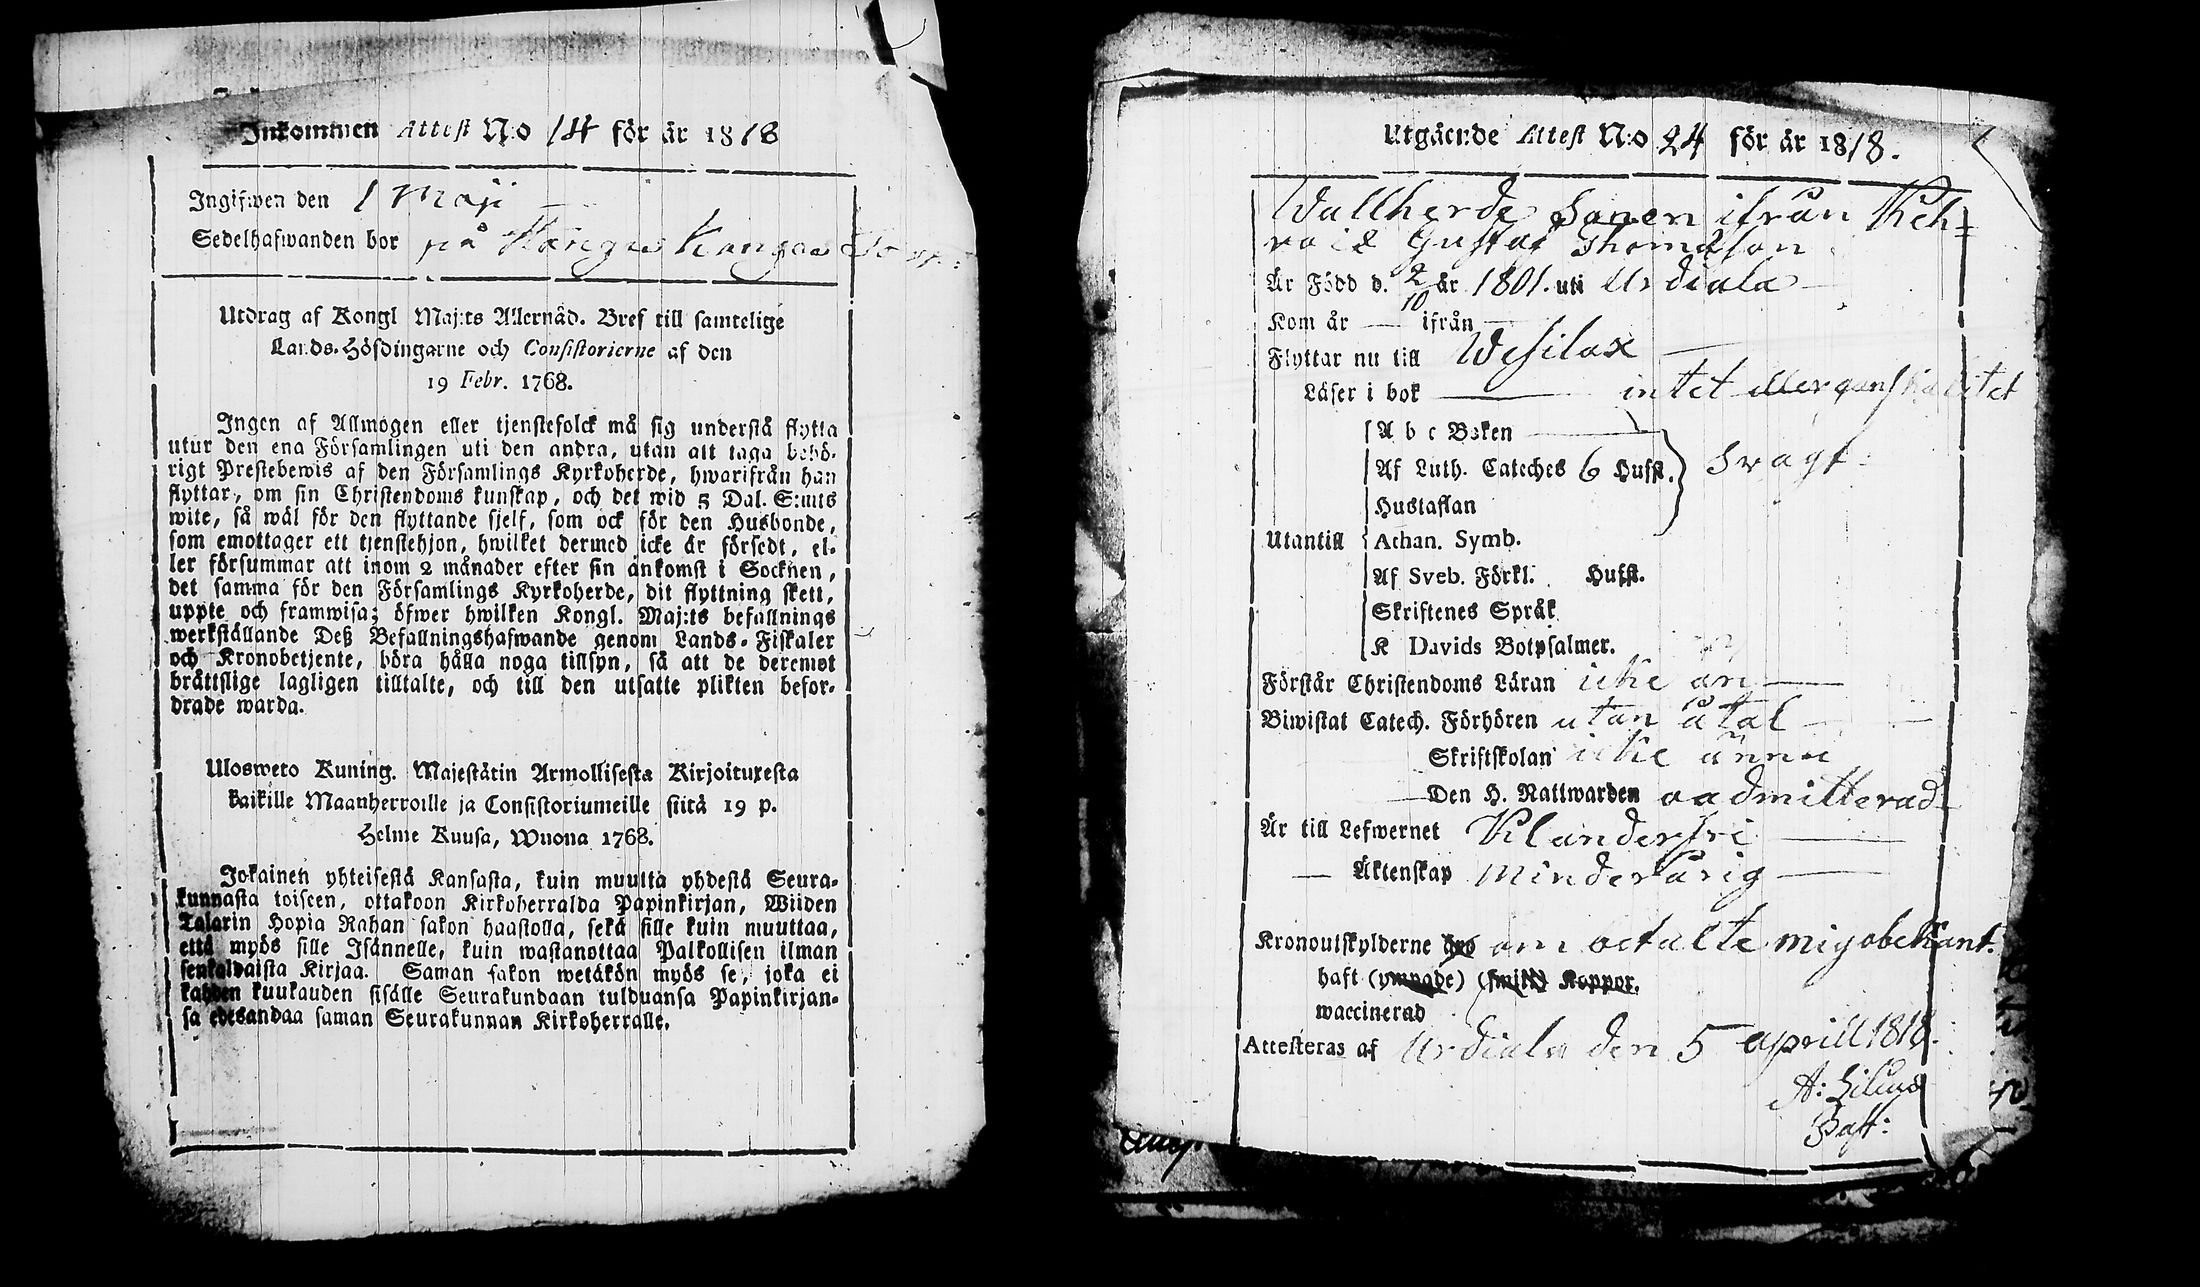 Inkommen Attest N:o 14 för år 1818
Ingifwen den 1 Maji
Sedelhafwanden bor på Kangas
Utdrag af Kongl Maj:ts Allernåd. Bref till samtelige
Lands-Höfdingarne och Consistorierne af den
19 Febr. 1768.
Ingen af Allmogen eller tjenstefolck må sig understå flytta
utur den ena Församlingen uti den andra, utan att taga behö-
rigt Prestebewis af den Församlings Kyrkoherde, hwarifrån han
flyttar, om sin Christendoms kunskap, och det wid 5 Dal. S:mts
wite, så wäl för den flyttande sjelf, som ock för den Husbonde,
som emottager ett tjenstehjon, hwilket dermed icke är försedt, el-
ler försummar att inom 2 månader efter sin ankomst i Socknen,
det samma för den Församlings Kyrkoherde, dit flyttning skett,
uppte och framwisa; öfwer hwilken Kongl. Maj:ts befallnings
werkställande Deß Befallningshafwande genom Lands-Fiskaler
och Kronobetjente, böra hålla noga tillsyn, så att de deremot
bråttslige lagligen tilltalte, och till den utsatte plikten befor-
drade warda.
Ulosweto Kuning. Majestätin Armollisesta Kirjoituxesta
kaikille Maanherroille ja Consistoriumeille siitä 19 p.
Helme Kuusa, Wuona 1768.
Jokainen yhteisestä Kansasta, kuin muutta yhdestä Seura-
kunnasta toiseen, ottakoon Kirkoherralda Papinkirjan, Wiiden
Talarin Hopia Rahan sakon haastolla, sekä sille kuin muuttaa,
että myös sille Isännelle, kuin wastanottaa Palkollisen ilman
senkaldaista Kirjaa. Saman sakon wetäkön myös se, joka ei
kahden kuukauden sisälle Seurakundaan tulduansa Papinkirjan-
sa edesandaa saman Seurakunnan Kirkoherralle.
Utgående Attest N:o 24 för år 1818.
Wallherde Sonen ifrån Keh=
rois Gustaf Thomasson
Är Född d. 2/10 år 1801. uti Urdiala
Kom år — ifrån —
Flyttar nu till Wesilax
Läser i bok — intet
A b c Boken
Af Luth. Cateches 6 Hufst. Svagt.
Hustaflan
Utantill Athan. Symb.
Af Sveb. Förkl. Hufst.
Skriftenes Språk
K Davids Botpsalmer.
Förstår Christendoms Läran icke än
Biwistat Catech. Förhören utan åtal
Skriftskolan icke ännu
Den H. Nattwarden oadmitterad
Är till Lefwernet Klanderfri
— Äktenskap Minderårig
Kronoutskylderne äro om betalte mig obekant.
haft (ympade) (smitt) Koppor.
waccinerad
Attesteras af Urdiala den 5 aprill 1818.
A: Lilius
Past: